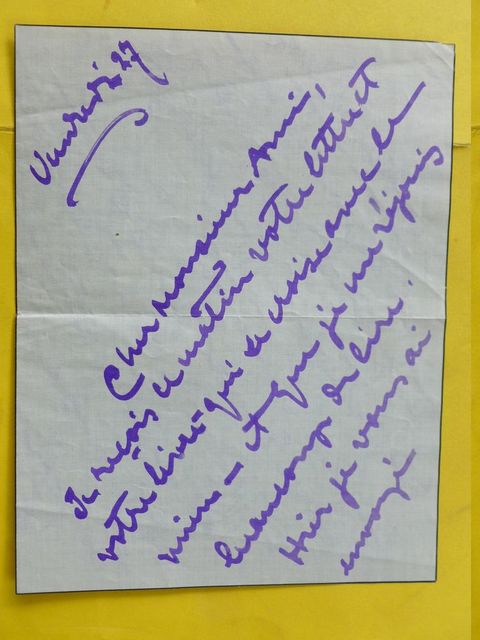 Vendredi 27
Cher Monsieur Ami,
Je reçois ce matin votre lettre et
votre livre - qui se croise avec le
mien - et que je me réjouis
beaucoup de lire.
Hier je vous ai
envoyé